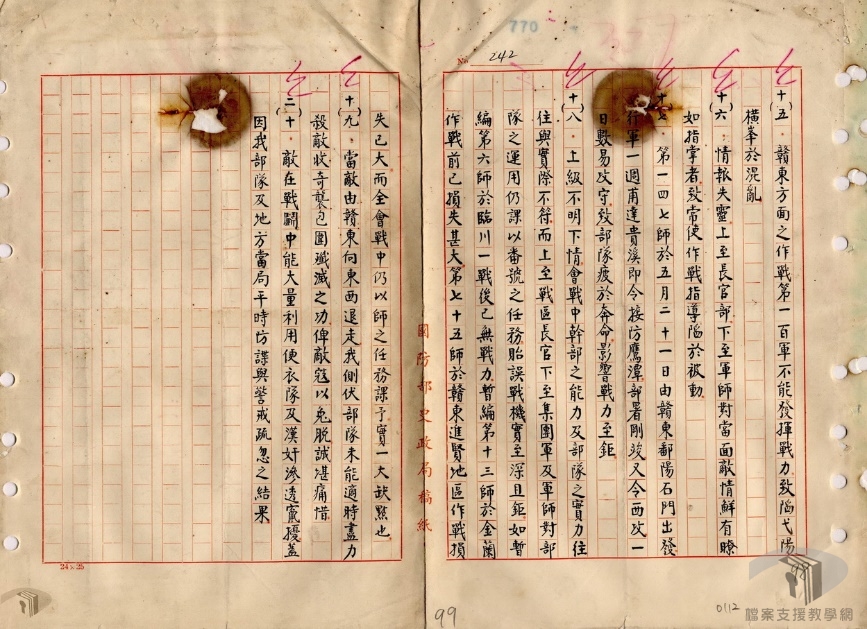 770
No. 242
十五、贛東方面之作戰第一百軍不能發揮戰力致陷弋陽
橫峯於混亂
十六、情報失靈上至長官部下至軍師對當面敵情鮮有瞭
如指掌者致常使作戰指導陷於被動
十七、第一四七師於五月二十一日由贛東鄱陽石門出發
行軍一週甫達貴溪即令接防鷹潭部署剛竣又令西攻一
日數易攻守致部隊疲於奔命影響戰力至鉅
十八、上級不明下情會戰中幹部之能力及部隊之實力往
往與實際不符而上至戰區長官下至集團軍及軍師對部
隊之運用仍課以番號之任務胎誤戰機實至深且鉅如暫
編第六師於臨川一戰後已無戰力暫編第十三師於金蘭
作戰前已損失甚大第七十五師於贛東進賢地區作戰損
國防部史政局稿紙
失已大而全會戰中仍以師之任務課予實一大缺點也
十九、當敵由贛東向東西退走我側伏部隊未能適時盡力
殺敵狀奇襲包圍殲滅之功俾敵寇以兔脫誠堪痛惜
二十、敵在戰鬪中能大量利用便衣隊及漢奸滲透竄擾蓋
因我部隊及地方當局平時防諜與警戒疏忽之結果
24×25
99
0112
檔案支援教學網